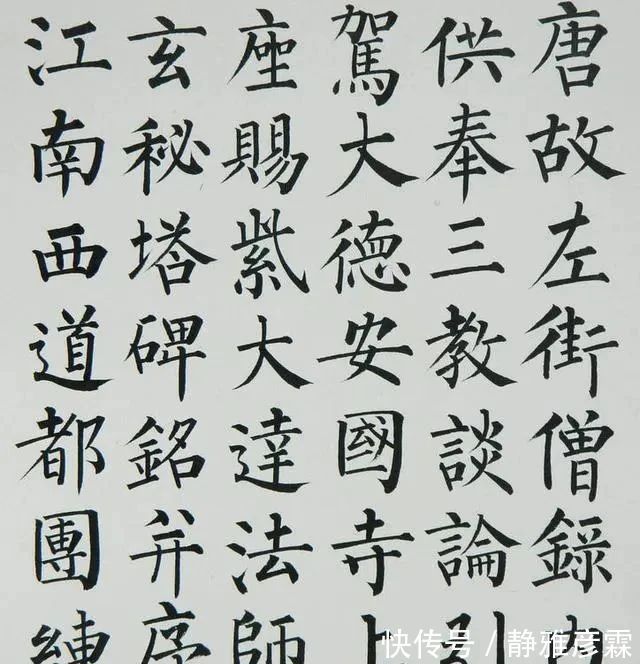 唐故左街僧錄
供奉三教談論引
駕大德安國寺上
座賜紫大達法師
玄秘塔碑銘并序
江南西道都團練
快传号/静雅彦霖